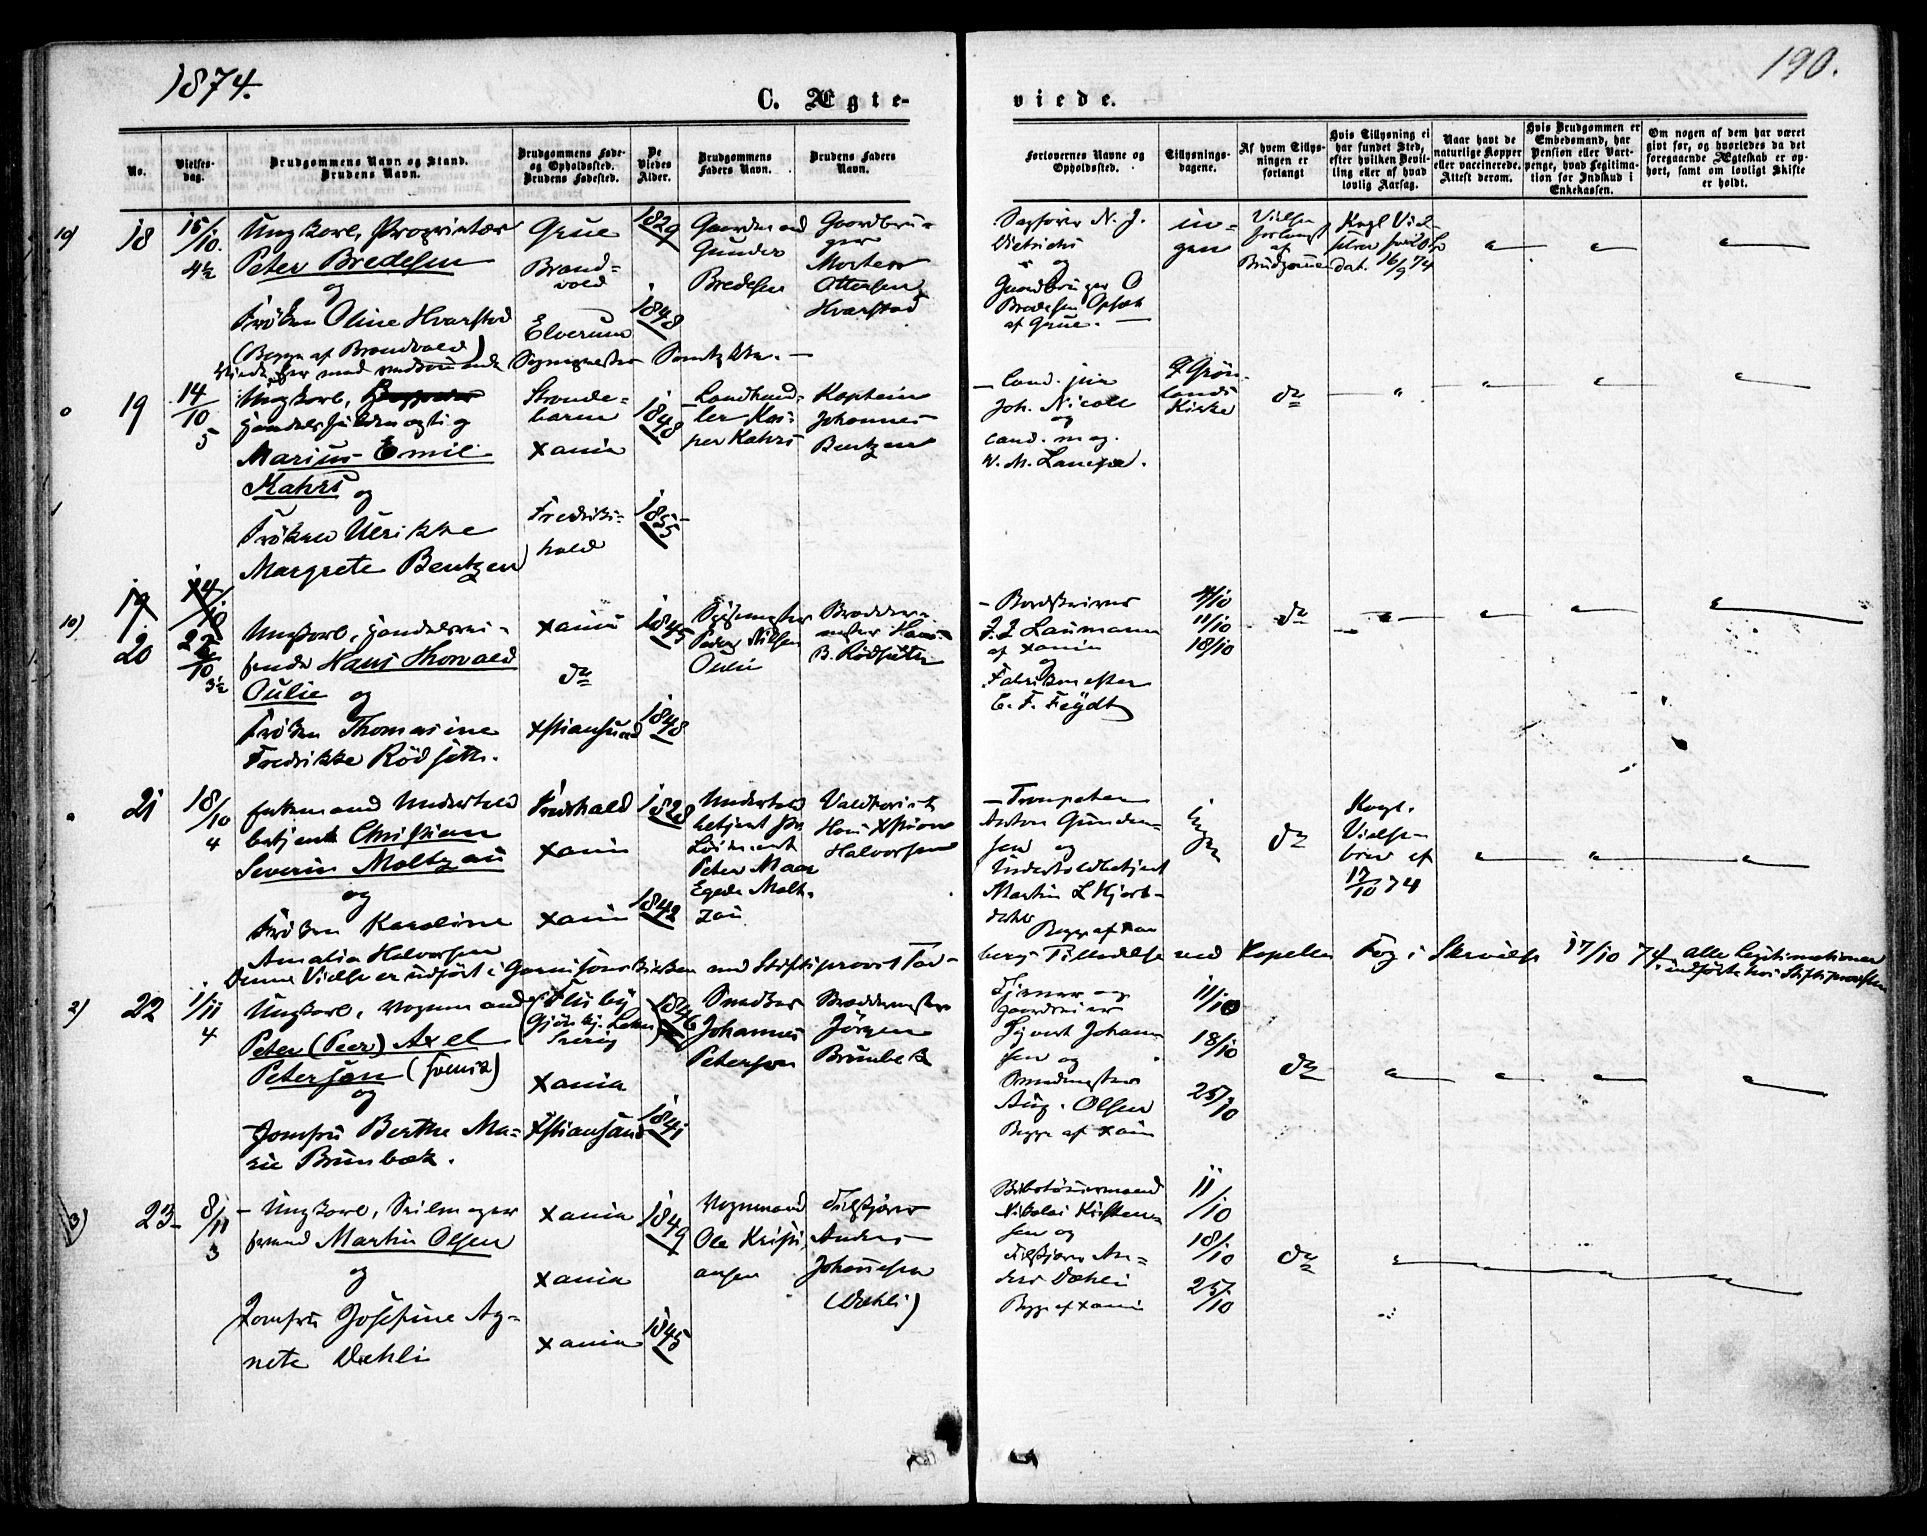 1874.
190.
C. Ægte-
viede.
No.
Vielses-
dag.
Brudgommens Navn og Stand.
Brudens Navn.
Brudgommens Føde-
og Opholdssted.
Brudens Fødested.
De
Viedes
Alder.
Brudgommens
Faders Navn.
Brudens Faders
Navn.
Forlovernes Navne og
Opholdssted.
Tillysnings-
dagene.
Af hvem Tillys-
ningen er
forlangt
Hvis Tillysning ei
har fundet Sted,
efter hvilken Bevil-
ling eller af hvad
lovlig Aarsag.
Naar havt de
naturlige Kopper
eller vaccinerede.
Attest derom.
Hvis Brudgommen er
Embedsmand, har
Pension eller Vart-
penge, hvad Legitima-
tion for Indskud i
Enkekassen.
Om nogen af dem har været
gift før, og hvorledes da det
foregaaende Ægteskab er op-
hørt, samt om lovligt Skifte
er holdt.
18
15/10
4½
Ungkarl, Proprietær
Peter Bredesen
og
Frøken Oline Hvarstad
(Begge af Brandvold)
Grue
Brand-
vold
Elverum
1829
1848
Gaardmand
Gunder
Bredesen
Gaardbru-
ger
Morten
Ottersen
Hvarstad
Sagfører N. J.
Dietrichs
og
Gaardbruger O
Bredesen Opsæt
af Grue.
in-
gen
Vielsen
forlangt
af
Brudgommen
Kogl Viel-
dat. 16/9 74
19
14/10
5
Ungkarl,
Handelsfuldmægtig
Marius Emil
Kahrs
og
Frøken Ulrikke
Margrete Bentzen
Strande-
barm
Xania
Fredriks-
hald
1848
1855
Landhand-
ler Kas-
per Kahrs
Kaptein
Johannes
Bentzen
Cand. jur
Joh. Nicoll
og
cand. mag.
Grøn-
lands
Kirke
do
19
14/10
20
22/10
3½
Ungkarl, Handelsrei-
sende Hans Thorvald
Oulie
og
Frøken Thomasine
Fredrikke Rødseth.
Xania
do
Xstiansund
1845
1848
Peder Nilsen
Oulie
J. J. Laumann
af Xania
og
Fabrikmester
C. F. Feydt
4/10
11/10
18/10
do
21
18/10
4
Enkemand Undertold
betjent Christian
Severin Moltzau
og
Frøken Karoline
Amalia Halvorsen
Fredrhald
Xania
Xania
1828
1842
Undertold
betjent
Peter Maar
Egede Molt-
zau
Hans Xstian
Halvorsen
Trompeter
Anton Gunder-
sen og
Undertoldbetjent
Martin L Hjort-
dahl
Begge af Xan
Ingen
do
Kogl.
Vielse-
brev af
17/10 74
Denne Vielse er udført i Garnisonskirken med Stiftsprovst Tad-
bergs Tilladelse ved Kapellan Fog i Skrivelse 17/10 74 - alle Legitimationer
indførte hos Stiftsprovsten
22
1/11
4
Ungkarl, Vognmand
Peter (Peer) Axel
Peterson (svensk)
og
Jomfru Berthe Ma-
rie Brunbæk.
Xania
Xstiansand
1846
1841
Snedker
Johannes
Peterson
Jørgen
Brunbæk
Tjener og
Syvert Johan-
sen og
Aug. Olsen
Begge af Xania
11/10
18/10
25/10
do
23
8/11
3
Ungkarl, Seilmager
svend Martin Olsen
og
Jomfru Josefine Ag-
nete Dæhli
Xania
Xania
Xania
1849
1845
Vognmand
Ole Kristi-
ansen
Anders
Johannesen
(Dæhli)
Nikolai Kristian-
sen og
An-
ders Dæhli
Begge af Xania
11/10
18/10
25/10
do